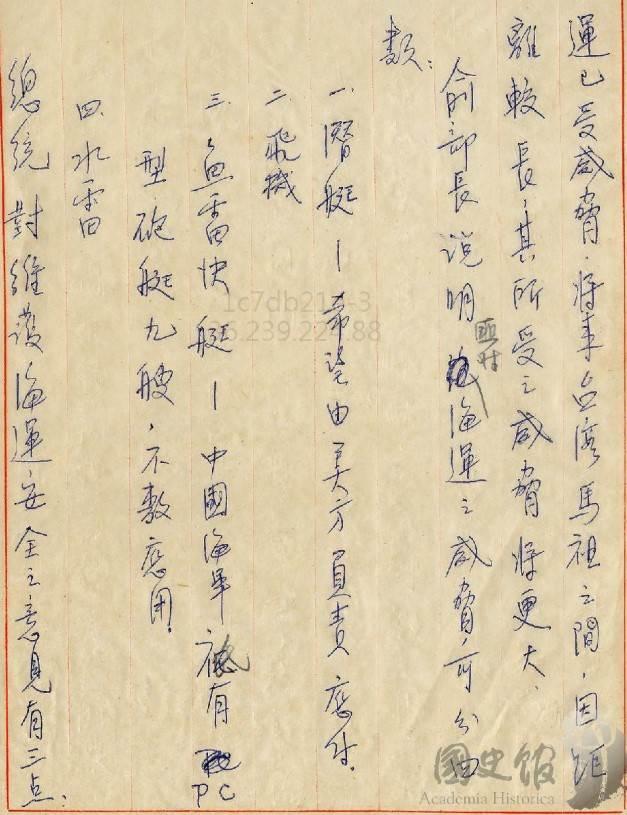 運已受威脅，將來台湾馬祖之間，因距
離較長，其所受之威脅將更大、
俞部長说明匪对海運之威脅，可分四
類：
一、潛艇－希望由美方負責應付。
二、飛機
三、魚雷快艇－中國海軍祗有PC
型砲艇九艘，不敷應用。
四、水雷
總統對維護海運安全之意見有三点：
國史館
Academia Historica
1c7db21
-3
36.239.22
.88